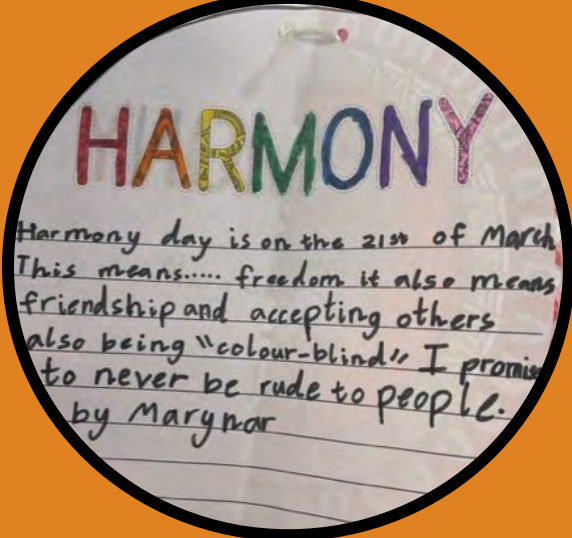 HARMONY
Harmony day is on the 21st of March
This means..... freedom it also means
friendship and accepting others
also being "colour-blind" I promise
to never be rude to people.
by Marynar